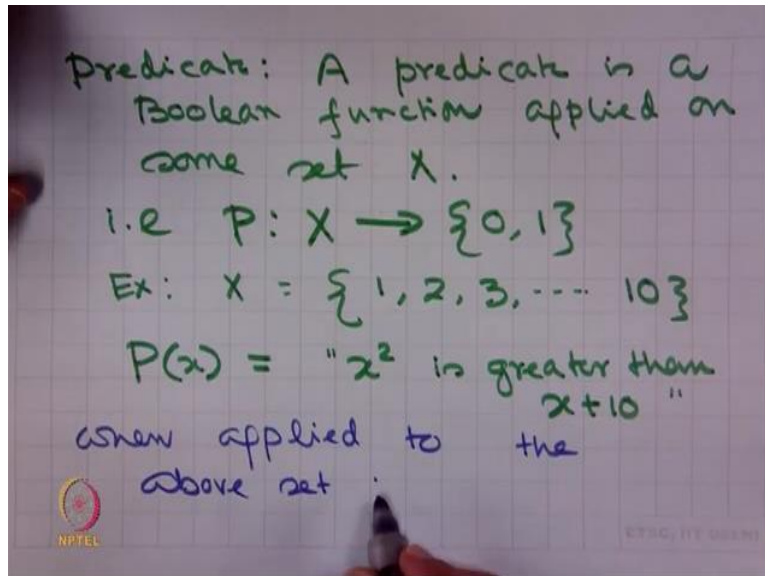 Predicate: A predicate is a
Boolean function applied on
some set X.
i.e P: X → {0, 1}
Ex: X = {1, 2, 3, ---- 10}
P(x) = "x² is greater than
x+10"
when applied to the
above set
NPTEL